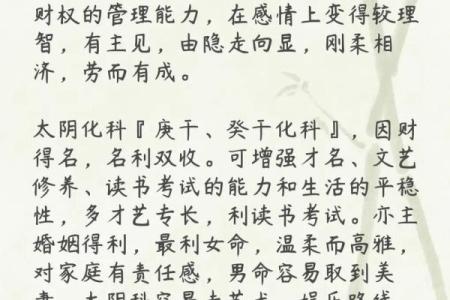 财权的管理能力，在感情上变得较理
智，有主见，由隐走向显，刚柔相
济，劳而有成。
太阴化科『庚干、癸干化科』，因财
得名，名利双收。可增强才名、文艺
修养、读书考试的能力和生活的平稳
性，多才艺专长，利读书考试。亦主
婚姻得利，最利女命，温柔而高雅，
对家庭有责任感，男命容易取到美